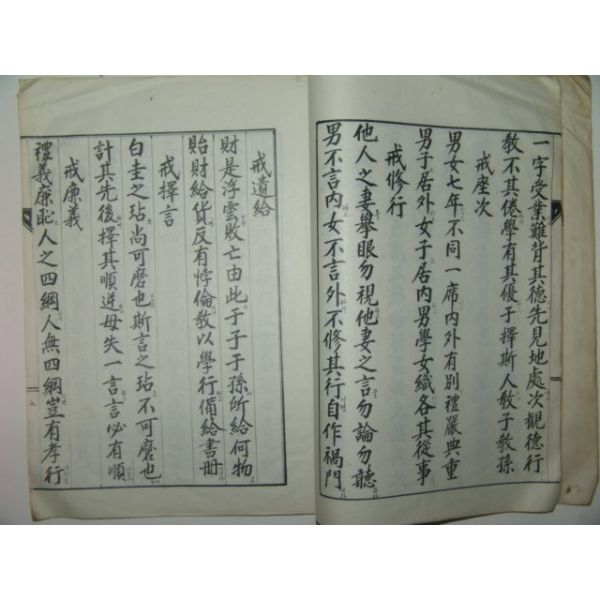 一字受業難背其德先見地處次觀德行
教不其倦學有其優子擇斯人教子教孫
戒座次
男女七年不同一席內外有別禮嚴典重
男子居外女子居內男學女織各其從事
戒修行
他人之妻擧眼勿視他妻之言勿論勿聽
男不言內女不言外不修其行自作禍門
戒遺給
財是浮雲敗亡由此于子于孫所給何物
貽財給貨反有悖倫教以學行備給書冊
戒擇言
白圭之玷尚可磨也斯言之玷不可磨也
計其先後擇其順逆毋失一言言必有順
戒廉義
禮義廉恥人之四綱人無四綱豈有孝行